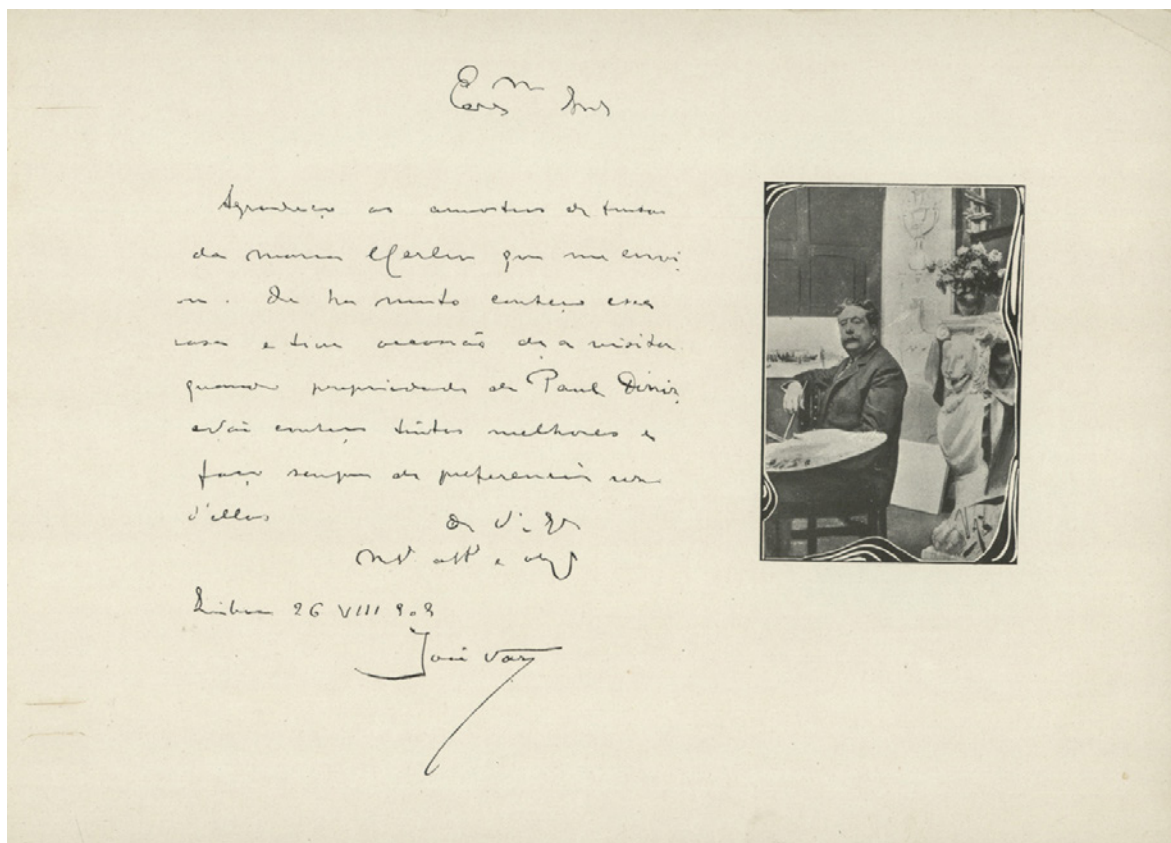 Ex.mos Snrs
Agradeço as amostras de tintas
da marca Merlin que me envi
De ha muito conheço essa
casa e tive occasião de a visitar
quando propriedade de Paul Diniz
conheço tintas melhores e
faço sempre de preferencia uso
d'ellas
De V. Ex
Mt Att e
Lisboa 26 VIII 909
José Vaz